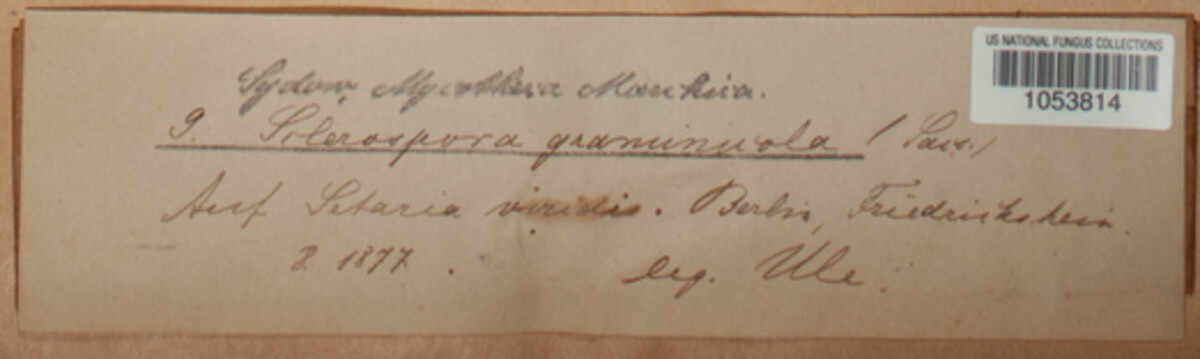 US NATIONAL FUNGUS COLLECTIONS
1053814
Sydow, Mycotheca Marchica.
9. Sclerospora graminicola (Sacc.)
Auf Setaria viridis. Berlin, Friedrichshain.
1877. leg. Ule.